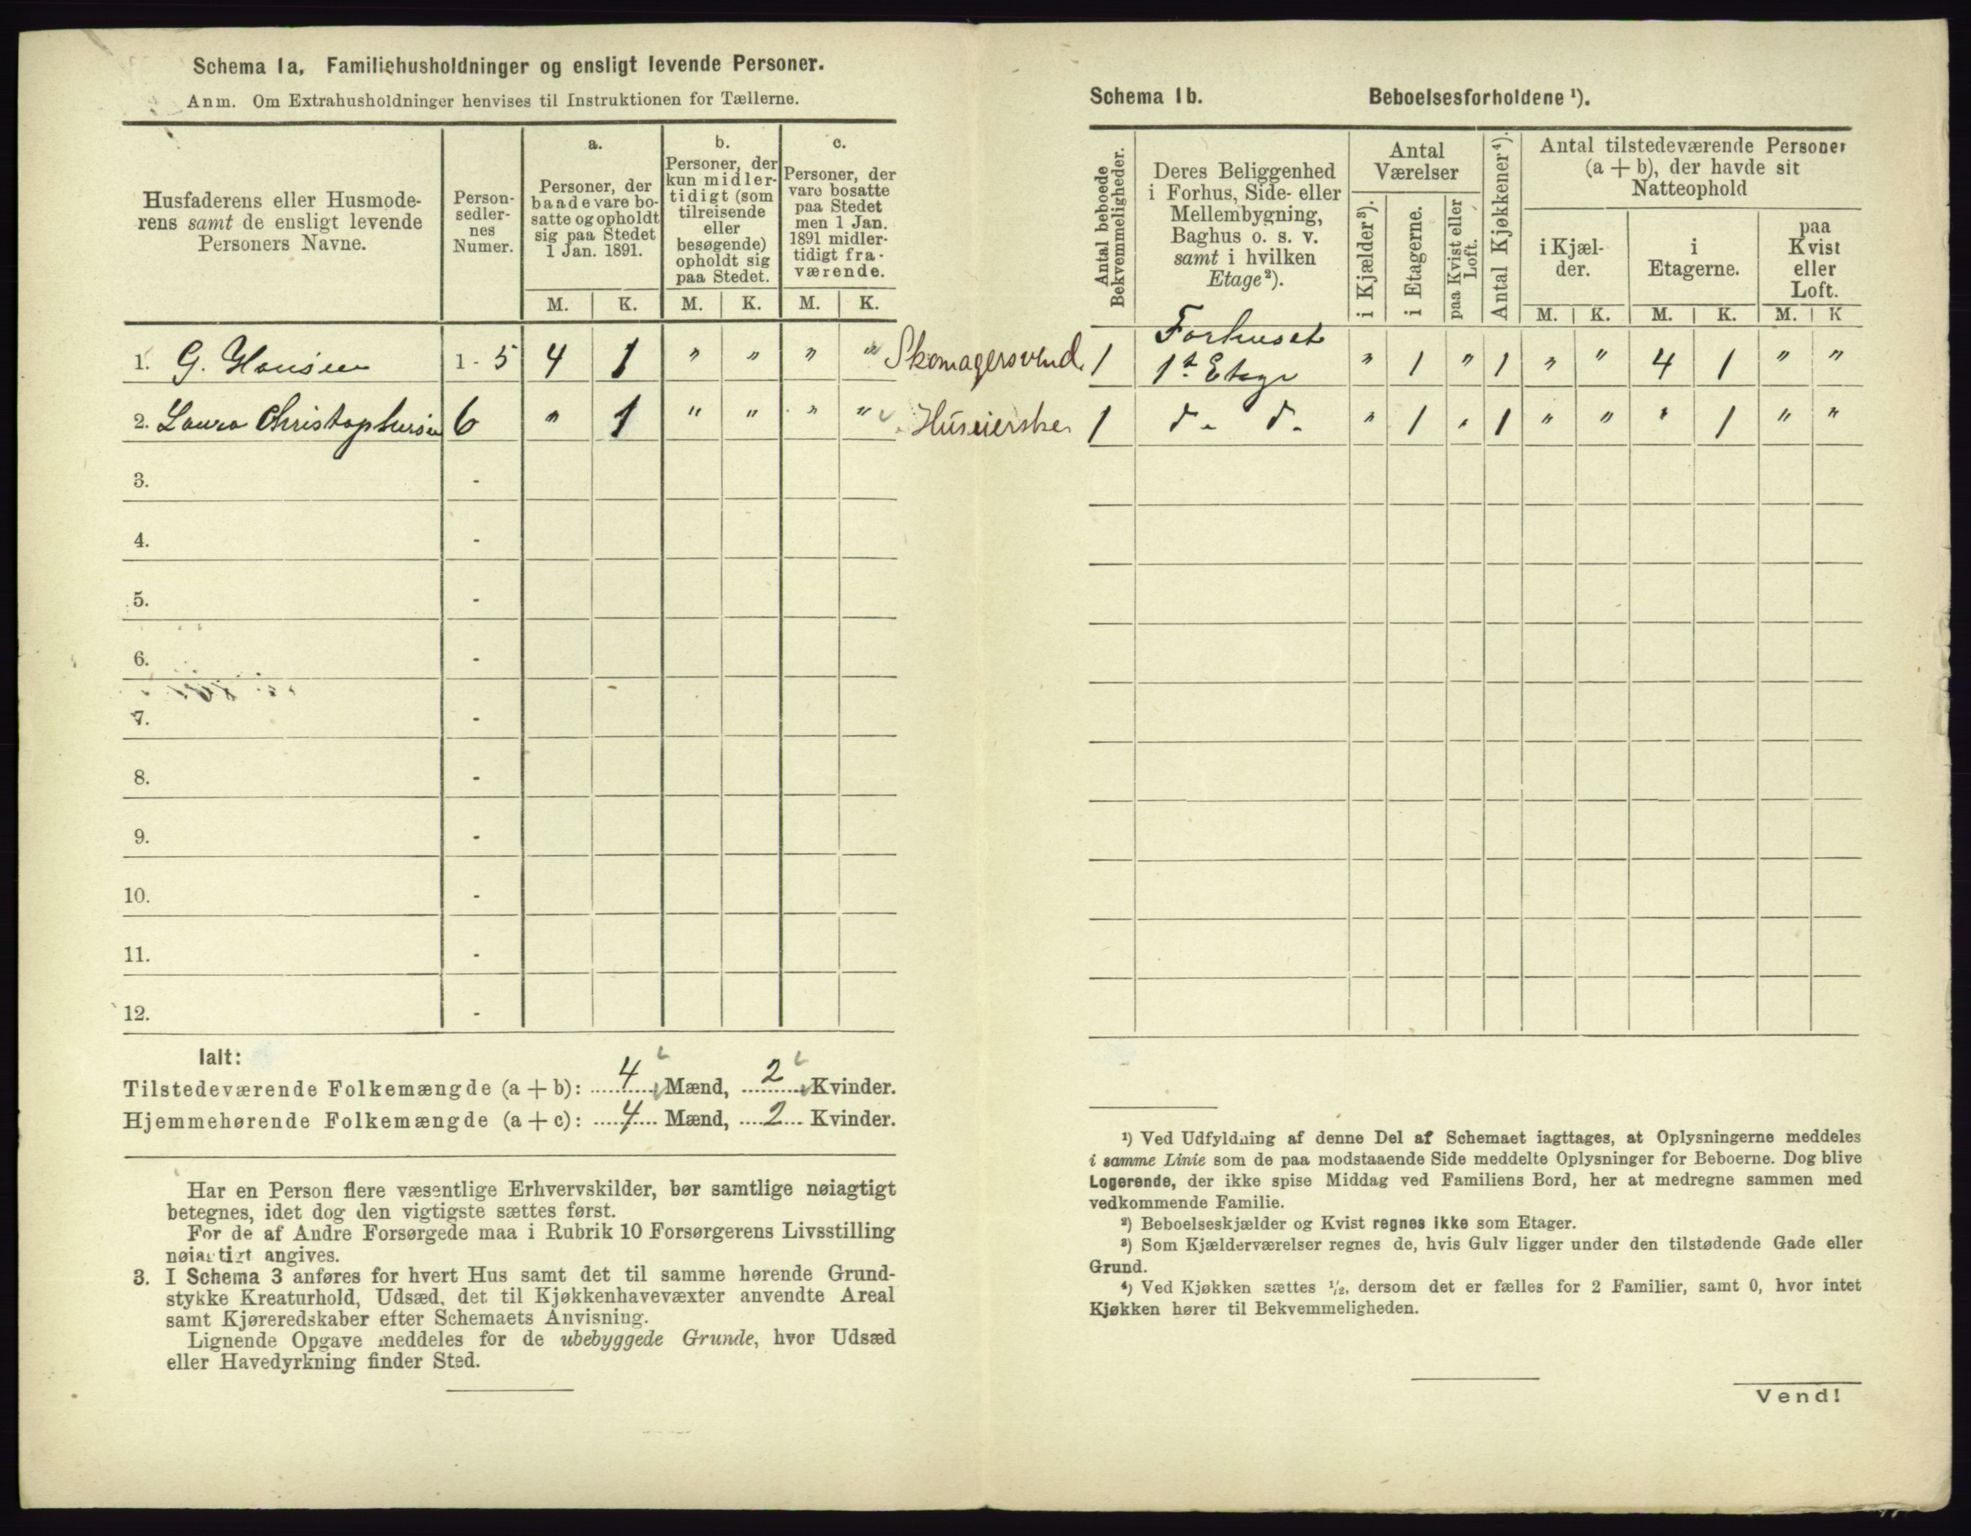 Schema 1a. Familiehusholdninger og ensligt levende Personer.
Anm. Om Extrahusholdninger henvises til Instruktionen for Tællerne.
Husfaderens eller Husmoderens samt de ensligt levende Personers Navne.
Personsedlernes Numer.
a.
Personer, der baade vare bosatte og opholdt sig paa Stedet 1 Jan. 1891.
b.
Personer, der kun midlertidigt (som tilreisende eller besøgende) opholdt sig paa Stedet.
c.
Personer, der vare bosatte paa Stedet men 1 Jan. 1891 midlertidigt fraværende.
M. K. M. K. M. K.
1. G. Hansen 1 - 5 4 1 " " " " Skomagersvend
2. Laura Christophersen 6 " 1 " " " " Huseierske
3. -
4. -
5. -
6. -
7. -
8. -
9. -
10. -
11. -
12. -
Ialt:
Tilstedeværende Folkemængde (a + b): 4 Mænd, 2 Kvinder.
Hjemmehørende Folkemængde (a + c): 4 Mænd, 2 Kvinder.
Har en Person flere væsentlige Erhvervskilder, bør samtlige nøiagtigt
betegnes, idet dog den vigtigste sættes først.
For de af Andre Forsørgede maa i Rubrik 10 Forsørgerens Livsstilling
nøiagtigt angives.
3. I Schema 3 anføres for hvert Hus samt det til samme hørende Grund-
stykke Kreaturhold, Udsæd, det til Kjøkkenhavevæxter anvendte Areal
samt Kjøreredskaber efter Schemaets Anvisning.
Lignende Opgave meddeles for de ubebyggede Grunde, hvor Udsæd
eller Havedyrkning finder Sted.
Schema 1b. Beboelsesforholdene ¹).
Antal beboede Bekvemmeligheder.
Deres Beliggenhed i Forhus, Side- eller Mellembygning, Baghus o. s. v. samt i hvilken Etage ²).
Antal Værelser
i Kjælder ³).
i Etagerne.
paa Kvist eller Loft.
Antal Kjøkkener ⁴).
Antal tilstedeværende Personer (a + b), der havde sit Natteophold
i Kjælder.
i Etagerne.
paa Kvist eller Loft.
M. K. M. K. M. K
1 Forhuset 1st Etage " 1 " 1 " " 4 1 " "
1 d. d. " 1 " 1 " " " 1 " "
¹) Ved Udfyldning af denne Del af Schemaet iagttages, at Oplysningerne meddeles
i samme Linie som de paa modstaaende Side meddelte Oplysninger for Beboerne. Dog blive
Logerende, der ikke spise Middag ved Familiens Bord, her at medregne sammen med
vedkommende Familie.
²) Beboelseskjælder og Kvist regnes ikke som Etager.
³) Som Kjælderværelser regnes de, hvis Gulv ligger under den tilstødende Gade eller
Grund.
⁴) Ved Kjøkken sættes ½, dersom det er fælles for 2 Familier, samt 0, hvor intet
Kjøkken hører til Bekvemmeligheden.
Vend!